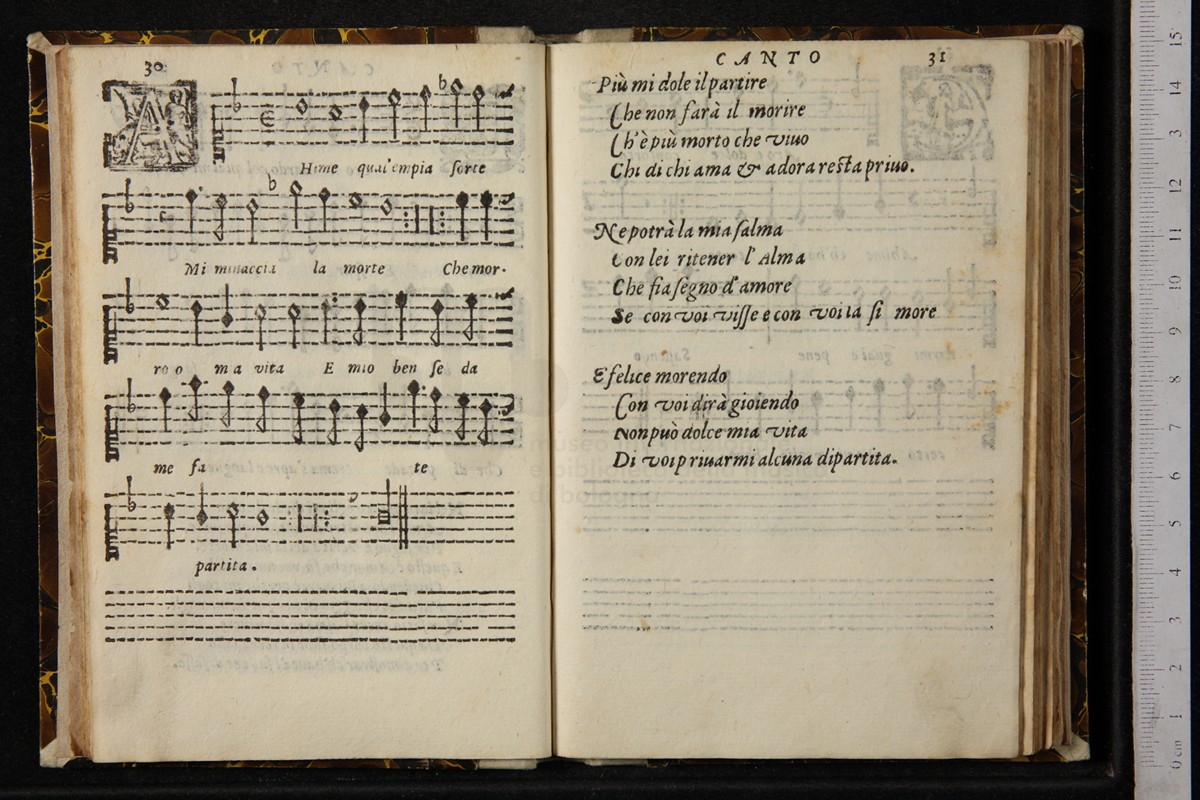 30
AHime qual'empia sorte
Mi minaccia la morte Che mor-
ro o ma vita E mio ben se da
me fa te
partita.
CANTO 31
Più mi dole il partire
Che non farà il morire
Ch'è più morto che viuo
Chi di chi ama & adora resta priuo.
Ne potrà la mia salma
Con lei ritener l'Alma
Che fia segno d'amore
Se con voi visse e con voi la si more
E felice morendo
Con voi dirà gioiendo
Non può dolce mia vita
Di voi priuarmi alcuna dipartita.
museo
e biblio
di bologna
0 cm 1 2 3 4 5 6 7 8 9 10 11 12 13 14 15